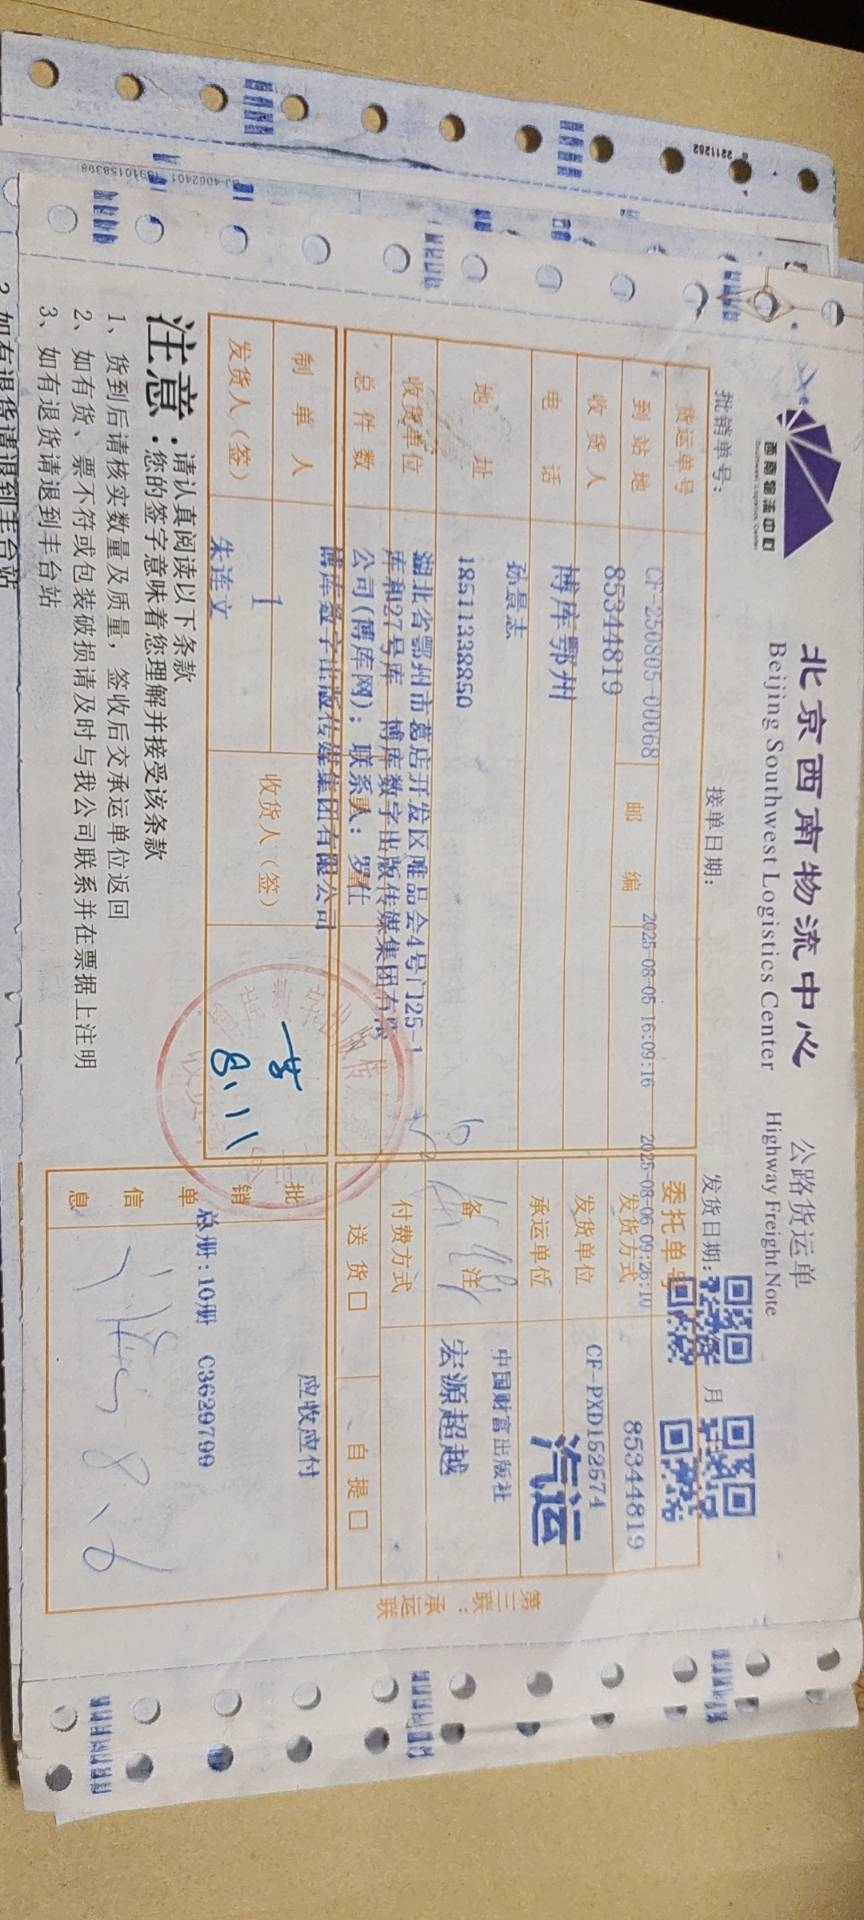 2211262
BJ-4062401
西南物流中心
Southwest Logistics Center
北京西南物流中心
Beijing Southwest Logistics Center
公路货运单
Highway Freight Note
批销单号：
接单日期：
发货日期：
月
2025-08-05 16:09:16
2025-08-06 09:26:10
货运单号
CF-250805-00068
委托单号
85344819
到站地
85344819
邮编
发货方式
CF-PXD152574
收货人
博库鄂州
发货单位
汽运
电话
孙景志
承运单位
中国财富出版社
地址
18511338850
备注
宏源超越
收货单位
湖北省鄂州市葛店开发区唯品会4号门25-1
库和27号库 博库数字出版传媒集团有限
公司(博库网)；联系人：罗仕
付费方式
总件数
博库数字出版传媒集团有限公司
送货口
自提口
制单人
1
收货人（签）
应收应付
发货人（签）
朱连文
8.11
批销单信息
总册：10册 C3629799
8.6
第三联：承运联
注意：
请认真阅读以下条款
您的签字意味着您理解并接受该条款
1、货到后请核实数量及质量，签收后交承运单位返回
2、如有货、票不符或包装破损请及时与我公司联系并在票据上注明
3、如有退货请退到丰台站
3、如有退货请退到丰台站